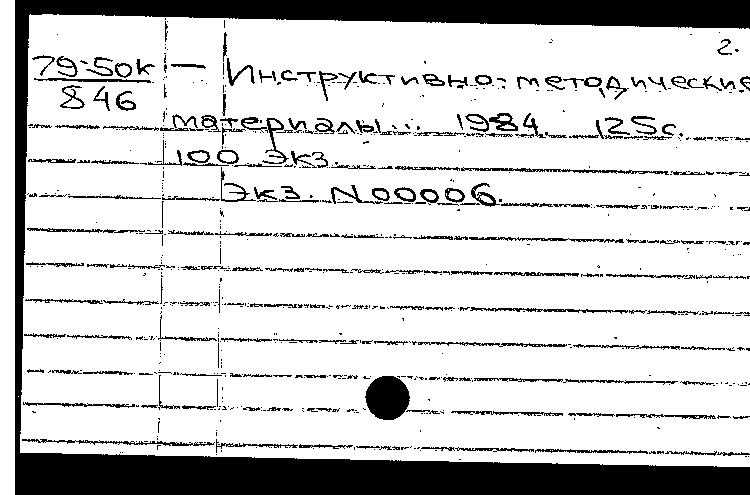 2.
79-50к — Инструктивно-методические
846
материалы... 1984. 125с.
100 экз.
Экз. N00006.